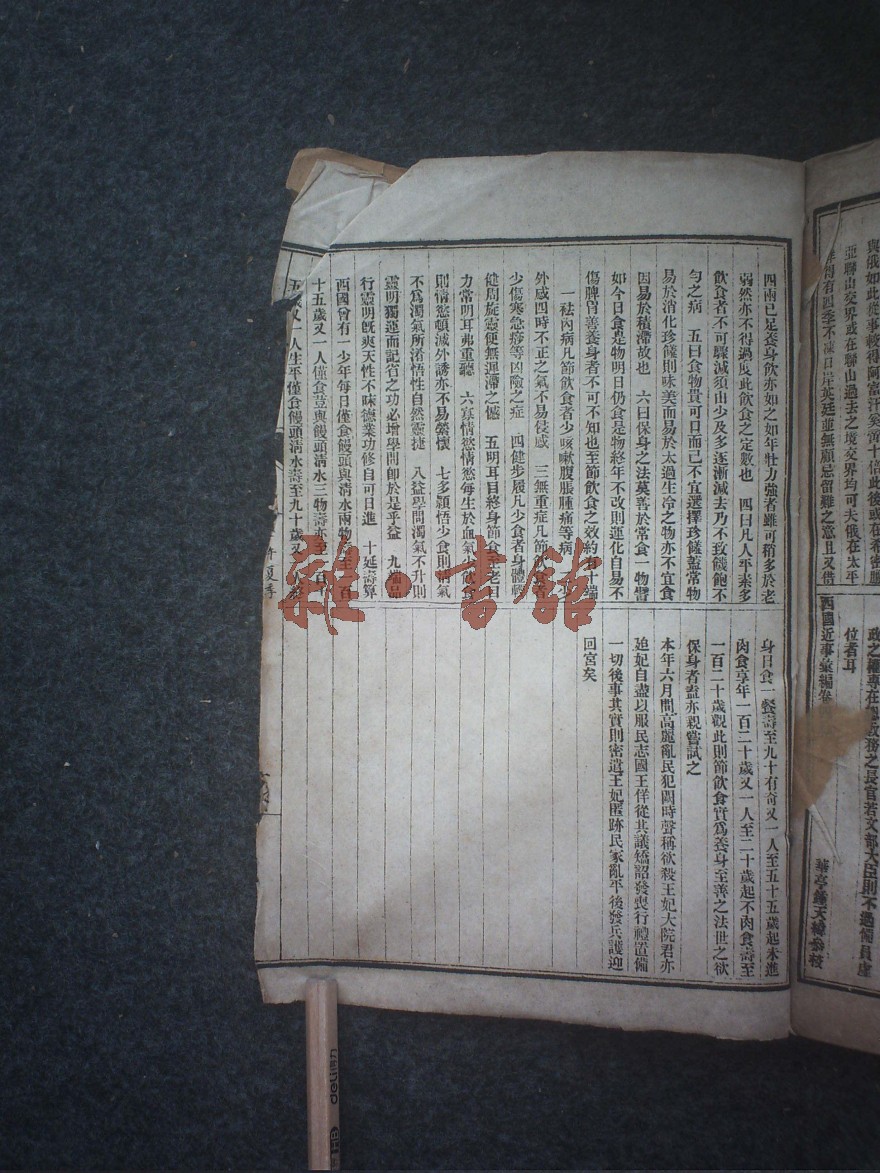 與俄如此從事較得阿富汗奚啻十倍此後或在希密臘
亞聯山交界或在聯山過去之境交界均可夫俄在太平
得有四季不凍口岸英廷並無顧忌留難之意且又借
政之權專在
政務之長官若文部大臣則不過備員虛
位者耳
西國近事彙編卷
華亭鍾天緯參校
四兩已足養身飲亦如之如年壯力強者雖可稍多於老
弱然亦不得過度此飲食之定數也　四曰凡人平素多
飲食者不可驟減須由少及多逐漸減去乃不致饑飽不
勻之病　五曰食物貴可口而已不宜選擇珍饈蓋常物
易於消化珍饈則味美而易於太過生冷之物亦不宜食
因易於積滯故也　六曰保身之法莫善於常食一物譬
如今日食是物明日仍食是物終年不改則運化自易不
傷脾胃善養身者不可不知也至節飲食之效約有十端
一袪內病凡節飲食者少咳嗽腹脹腫痛等病
外感四時不正之氣不易侵感　三無重症凡節飲食者
少傷寒急痧等凶險之症　四健步履凡少食者身體輕
健周旋靈便無遲滯之憾　五明耳目終身節食至老目
力常明耳弗重聽　六寡情慾情慾每生於血氣少飲食
則情慾頓減外誘亦不易縈懷　七多穎悟少食則清氣
不爲濁氣所淆悟性自然靈捷　八益學問濁氣不升則
靈明獨運而記省之功必增學問卽於是乎益　九端品
行靈明旣爽天性不昧德業功修自可日進　十延壽算
西國曾有一少年每日僅食饅頭與清水兩物壽至一百
十五歲又一人僅食荳與饅頭清水三物壽亦至一百
五歲又一人生平僅食饅頭清水壽至九十歲又一人終
身日食一餐壽至九十有奇又一人至五十五歲起未進
肉食享年一百二十歲又一人至二十歲起不肉食壽至
一百二十歲觀此則節飲食實爲養身至善之法世之欲
保身者盍亦親嘗試之
本年六月間高麗亂民犯闕時聲稱欲殺王妃大院君亦
廹妃自盡以服民志國王佯從其議矯詔發喪行禮置備
一切後事其實則密遣王妃匿跡民家亂平後發兵護迎
回宮矣
夏季
雜·書館
deli
HB